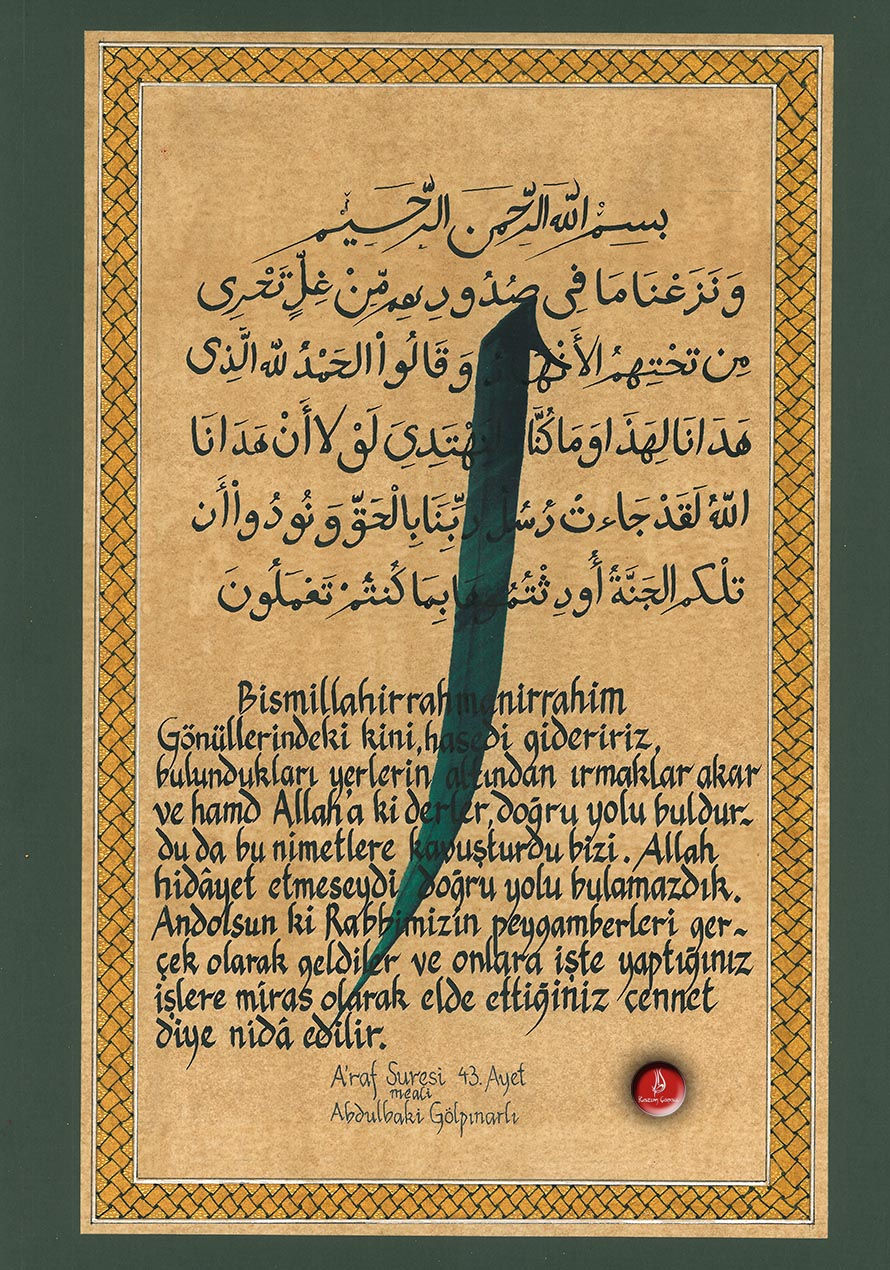 بِسْمِ اللّٰهِ الرَّحْمَنِ الرَّحِيْمِ
وَنَزَعْنَا مَا فِى صُدُورِهِم مِّنْ غِلٍّ تَجْرِى
مِن تَحْتِهِمُ الأَنْهَارُ وَقَالُواْ الحَمْدُ لله الَّذِى
هَدَانَا لِهَذَا وَمَا كُنَّا لِنَهْتَدِىَ لَوْلا أَنْ هَدَانَا
اللّهُ لَقَدْ جَاءتْ رُسُلُ رَبِّنَا بِالْحَقِّ وَنُودُواْ أَن
تلْكم الجَنَّةُ أُورِثْتُمُوهَا بِمَا كُنتُمْ تَعْمَلُونَ
Bismillahirrahmanirrahim
Gönüllerindeki kini, hasedi gideririz,
bulundukları yerlerin altından ırmaklar akar
ve hamd Allah'a ki derler, doğru yolu buldur-
du da bu nimetlere kavuşturdu bizi. Allah
hidâyet etmeseydi doğru yolu bulamazdık.
Andolsun ki Rabbimizin peygamberleri ger-
çek olarak geldiler ve onlara işte yaptığınız
işlere mîras olarak elde ettiğiniz cennet
diye nidâ edilir.
A'raf Suresi 43. Ayet
meali
Abdulbaki Gölpınarlı